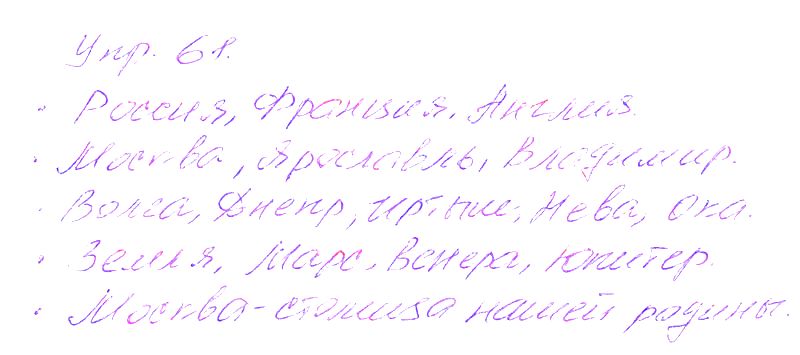 Упр. 61.
• Россия, Франция, Англия.
• Москва, Ярославль, Владимир.
• Волга, Днепр, Иртыш, Нева, Ока.
• Земля, Марс, Венера, Юпитер.
• Москва - столица нашей родины.